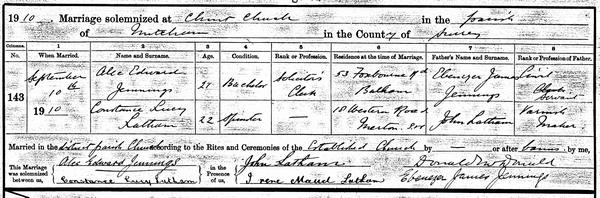 1910. Marriage solemnized at Christ Church in the Parish
of Mitcham in the County of Surrey
Columns. 1 2 3 4 5 6 7 8
No. When Married. Name and Surname. Age. Condition. Rank or Profession. Residence at the time of Marriage. Father's Name and Surname. Rank or Profession of Father.
143
September 10th 1910
Alec Edward Jennings 21 Bachelor Solicitor's Clerk 53 Foxbourne Rd Balham Ebenezer James Jennings Civil Servant
Constance Lucy Latham 22 Spinster — 18 Western Road Merton John Latham Varnish Maker
Married in the District parish Church according to the Rites and Ceremonies of the Established Church by — or after banns by me,
This Marriage was solemnized between us, Alec Edward Jennings in the Presence of us, John Latham
Constance Lucy Latham Irene Maud Latham Ebenezer James Jennings